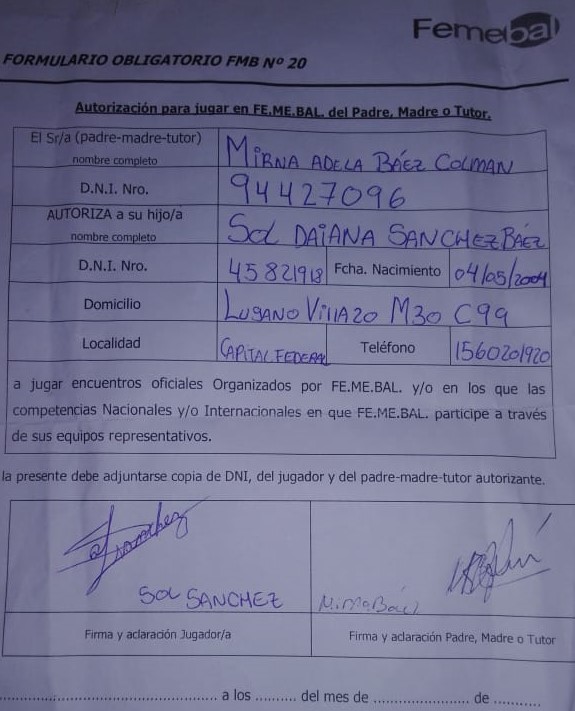 Femebal
FORMULARIO OBLIGATORIO FMB Nº 20
Autorización para jugar en FE.ME.BAL. del Padre, Madre o Tutor.
El Sr/a (padre-madre-tutor)
nombre completo
MIRNA ADELA BÁEZ COLMAN
D.N.I. Nro.
94427096
AUTORIZA a su hijo/a
nombre completo
SOL DAIANA SANCHEZ BÁEZ
D.N.I. Nro. 45821918 Fcha. Nacimiento 04/05/2004
Domicilio LUGANO VILLA 20 M30 C99
Localidad CAPITAL FEDERAL Teléfono 1560201920
a jugar encuentros oficiales Organizados por FE.ME.BAL. y/o en los que las
competencias Nacionales y/o Internacionales en que FE.ME.BAL. participe a través
de sus equipos representativos.
la presente debe adjuntarse copia de DNI, del jugador y del padre-madre-tutor autorizante.
SOL SANCHEZ
Mirna Báez
Firma y aclaración Jugador/a
Firma y aclaración Padre, Madre o Tutor
.................................................. a los .......... del mes de ....................... de ...........